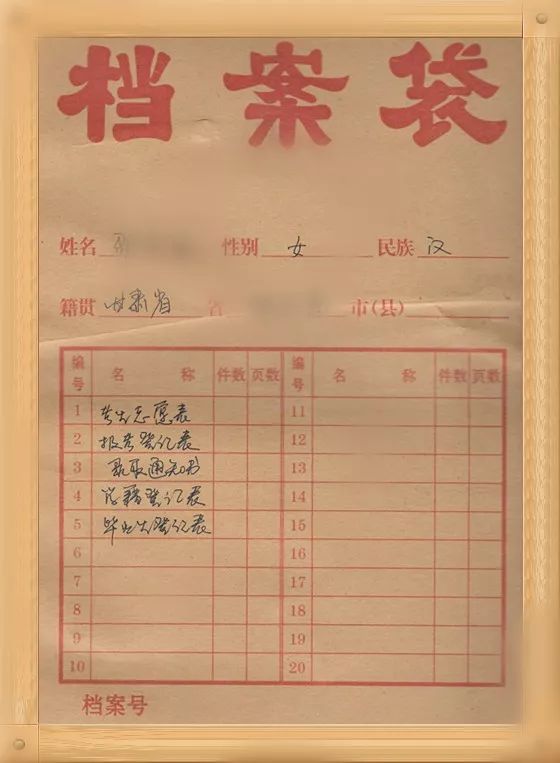 档案袋
姓名 性别 女 民族 汉
籍贯 甘肃省 省 市(县)
编号 名称 件数 页数 编号 名称 件数 页数
1 考生志愿表 11
2 报考登记表 12
3 录取通知书 13
4 学籍登记表 14
5 毕业生登记表 15
6 16
7 17
8 18
9 19
10 20
档案号